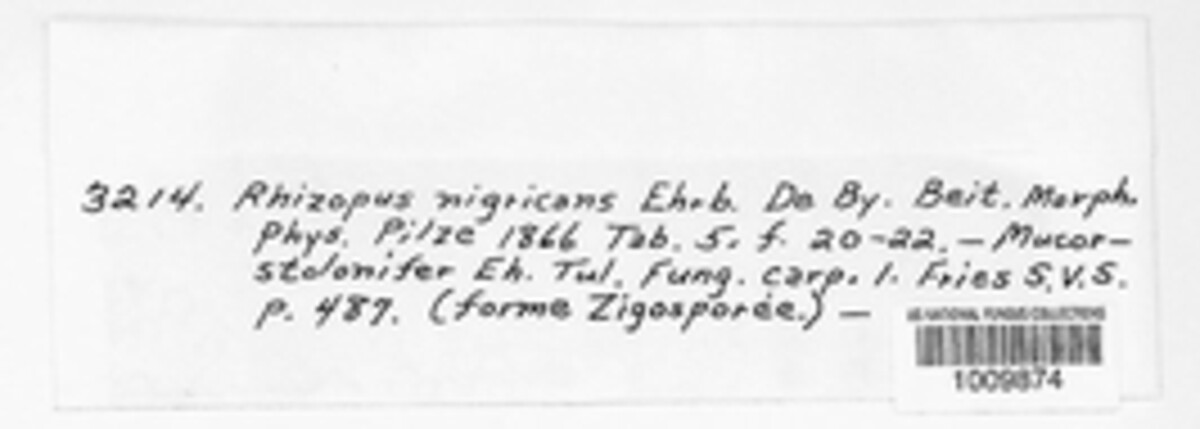 3214. Rhizopus nigricans Ehrb. De By. Beit. Morph.
Phys. Pilze 1866 Tab. 5. f. 20-22. — Mucor-
stolonifer Eh. Tul. Fung. carp. 1. Fries S.V.S.
p. 487. (forme Zigosporée.) —
US NATIONAL FUNGUS COLLECTIONS
1009874